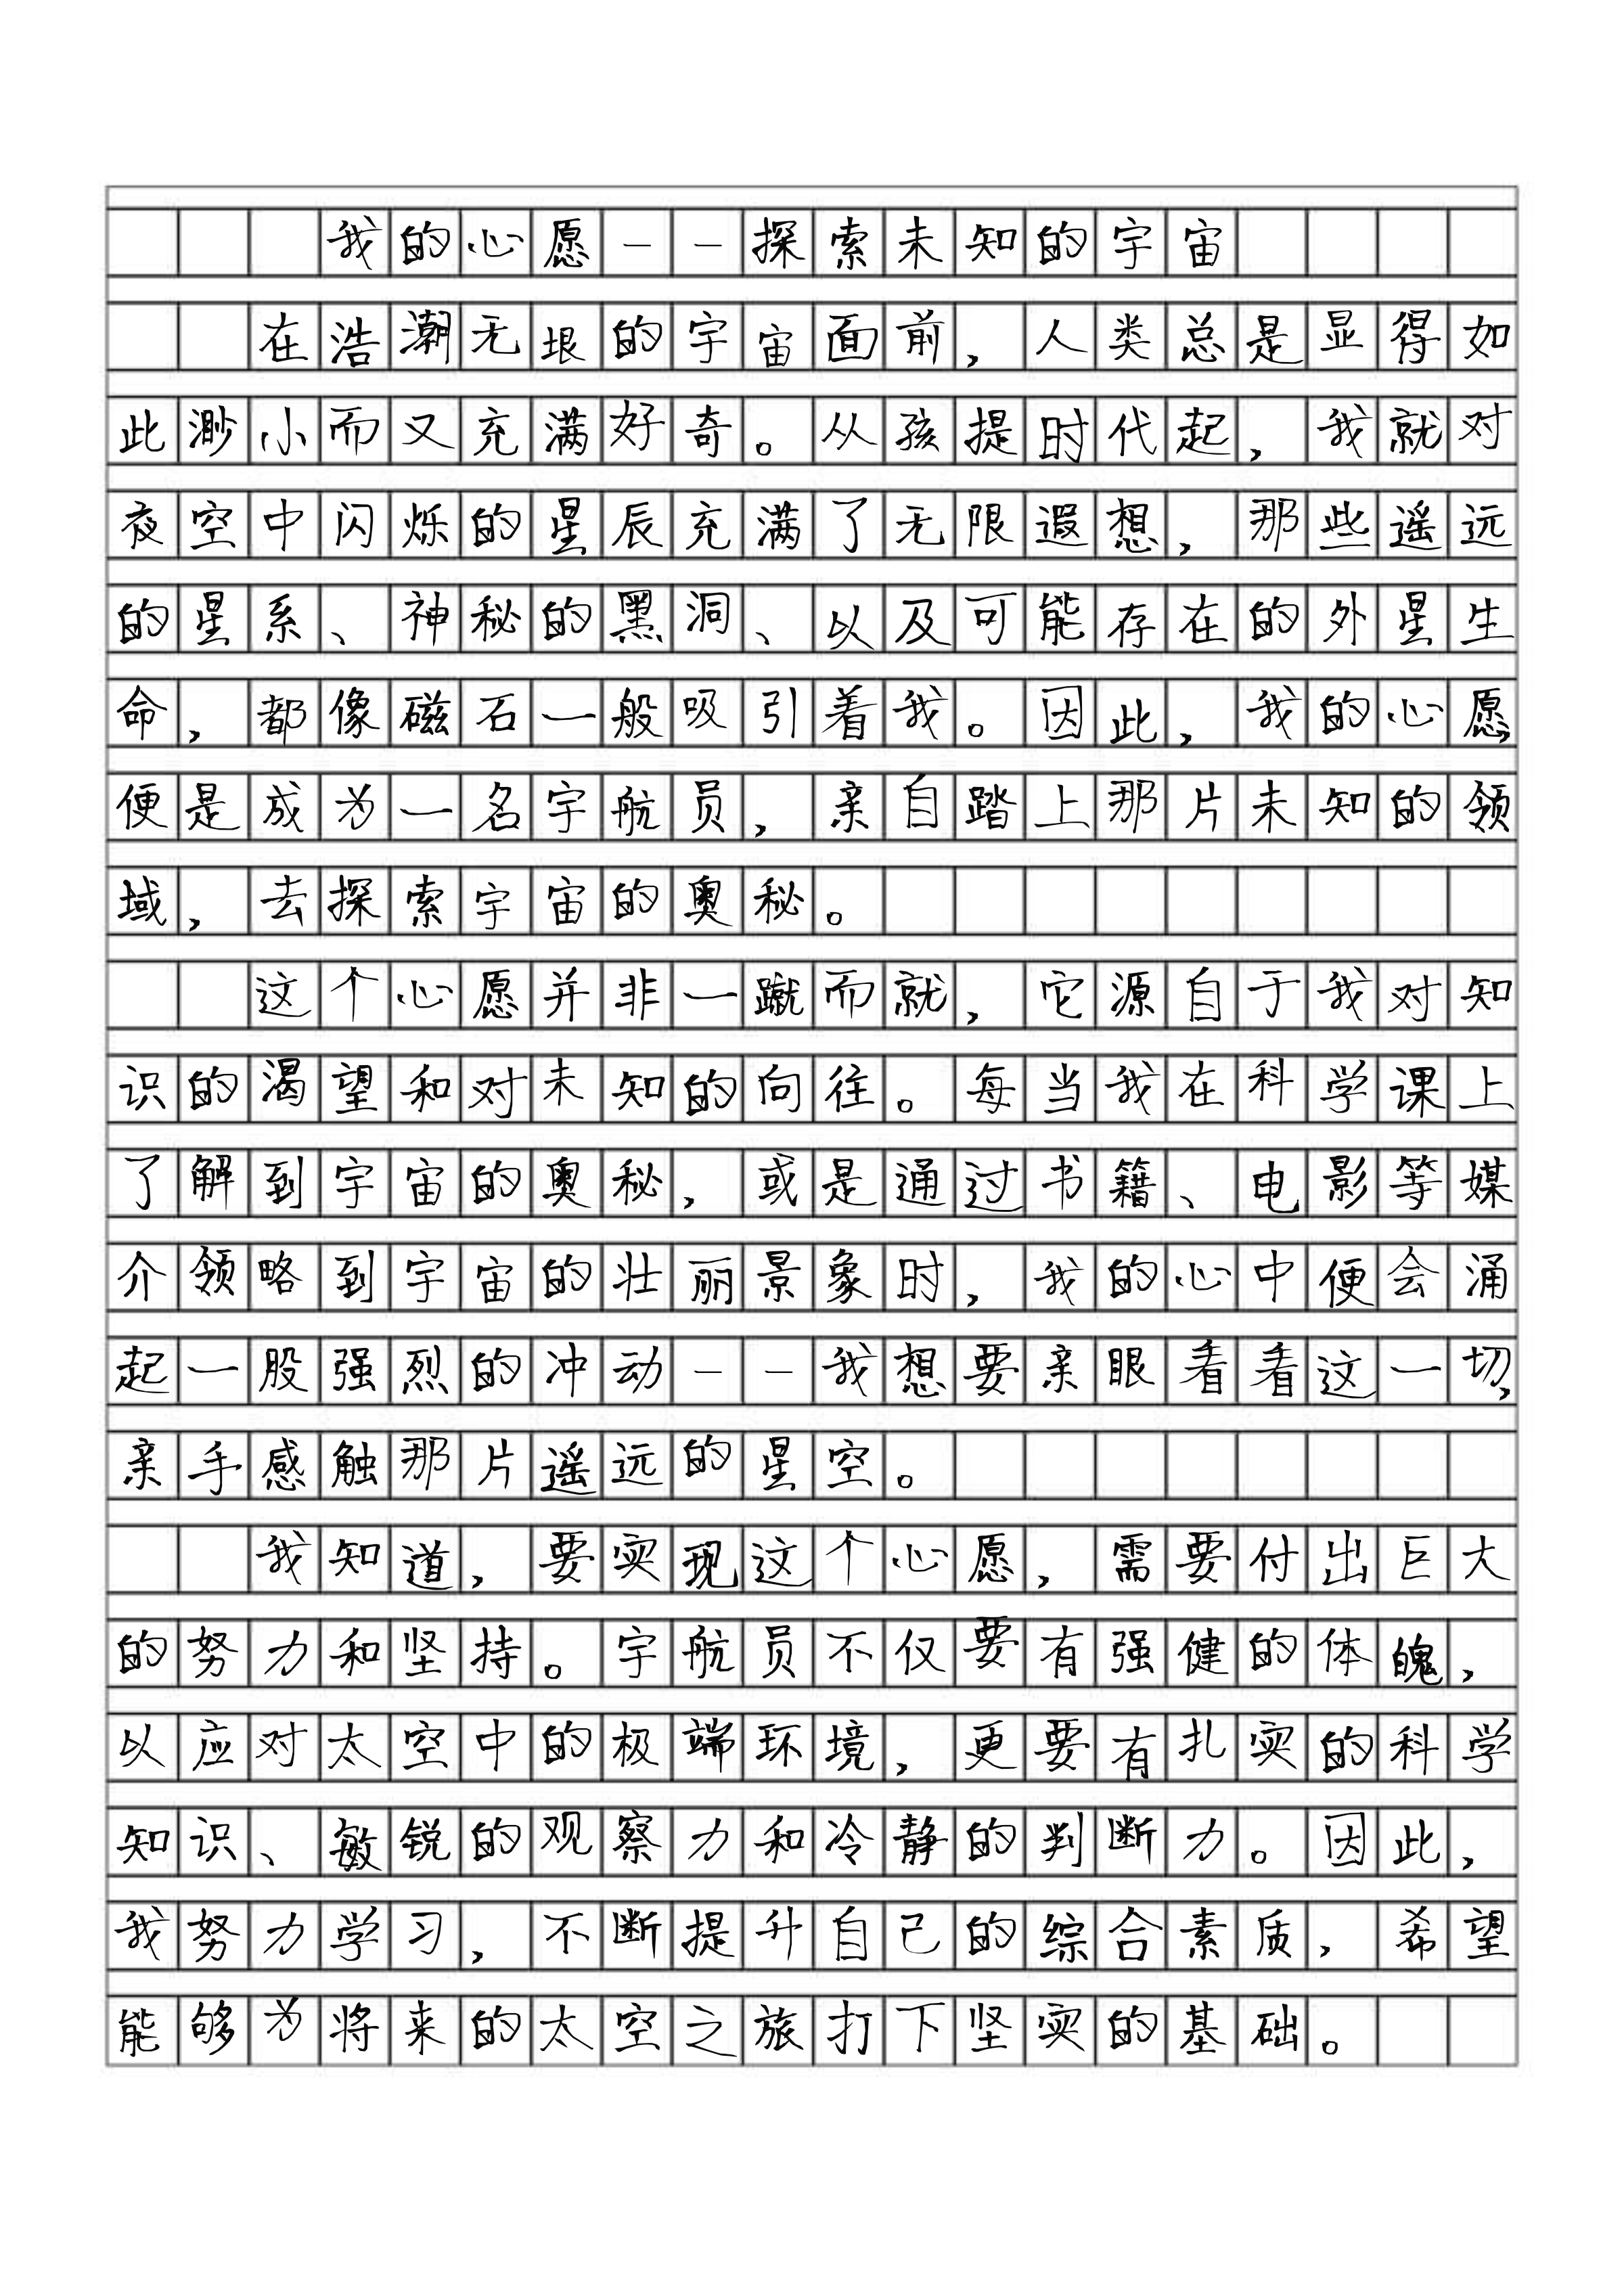 我的心愿--探索未知的宇宙
在浩潮无垠的宇宙面前，人类总是显得如
此渺小而又充满好奇。从孩提时代起，我就对
夜空中闪烁的星辰充满了无限遐想，那些遥远
的星系、神秘的黑洞、以及可能存在的外星生
命，都像磁石一般吸引着我。因此，我的心愿，
便是成为一名宇航员，亲自踏上那片未知的领
域，去探索宇宙的奥秘。
这个心愿并非一蹴而就，它源自于我对知
识的渴望和对未知的向往。每当我在科学课上
了解到宇宙的奥秘，或是通过书籍、电影等媒
介领略到宇宙的壮丽景象时，我的心中便会涌
起一股强烈的冲动--我想要亲眼看看这一切，
亲手感触那片遥远的星空。
我知道，要实现这个心愿，需要付出巨大
的努力和坚持。宇航员不仅要有强健的体魄，
以应对太空中的极端环境，更要有扎实的科学
知识、敏锐的观察力和冷静的判断力。因此，
我努力学习，不断提升自己的综合素质，希望
能够为将来的太空之旅打下坚实的基础。